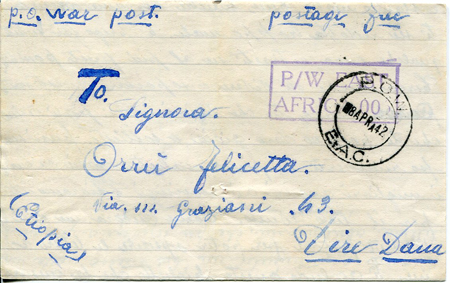 p.o. war post. postage free
P/W EAST
AFRICA 00
P.O.W.
8 APR 42
E.A.C.
To.
Signora.
Orrù Felicetta.
Via. m. Graziani. 43.
(Etiopia)
Dire Daua